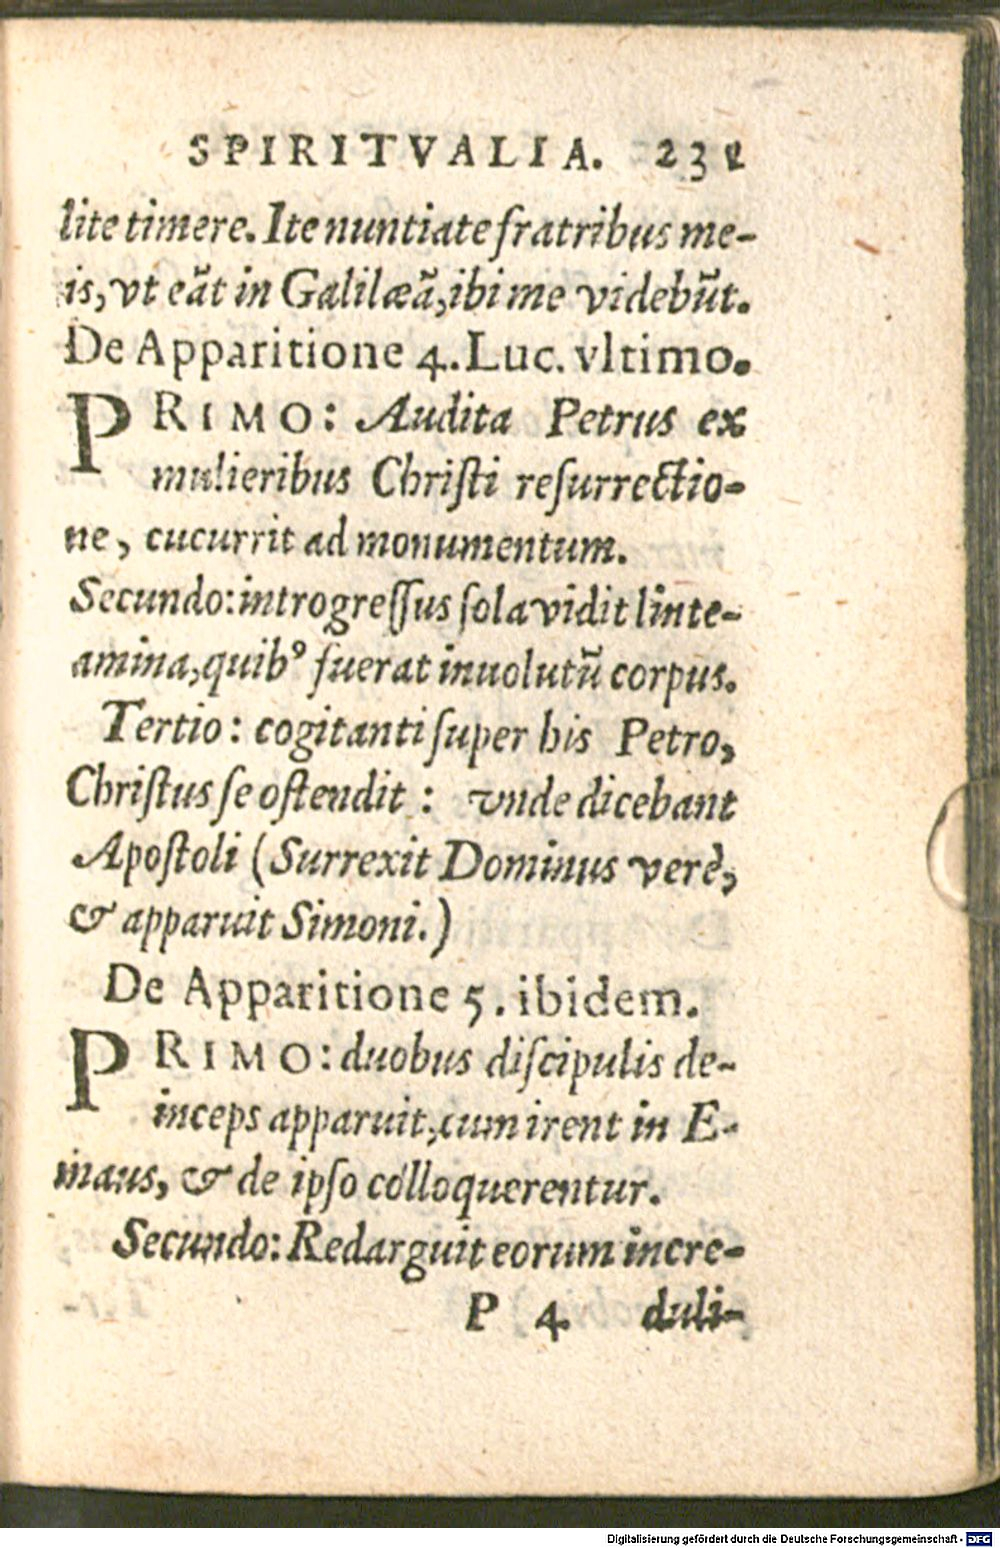 SPIRITVALIA. 231
lite timere. Ite nuntiate fratribus me-
is, vt eāt in Galilæā, ibi me videbūt.
De Apparitione 4. Luc. vltimo.
PRIMO: Audita Petrus ex
mulieribus Chriſti reſurrectio-
ne, cucurrit ad monumentum.
Secundo: introgreſſus ſola vidit linte-
amina, quibꝰ fuerat inuolutū corpus.
Tertio: cogitanti ſuper his Petro,
Chriſtus ſe oſtendit: vnde dicebant
Apoſtoli (Surrexit Dominus verè,
& apparuit Simoni.)
De Apparitione 5. ibidem.
PRIMO: duobus diſcipulis de-
inceps apparuit, cum irent in E-
maus, & de ipſo colloquerentur.
Secundo: Redarguit eorum incre-
P 4 duli-
Digitalisierung gefördert durch die Deutsche Forschungsgemeinschaft - DFG